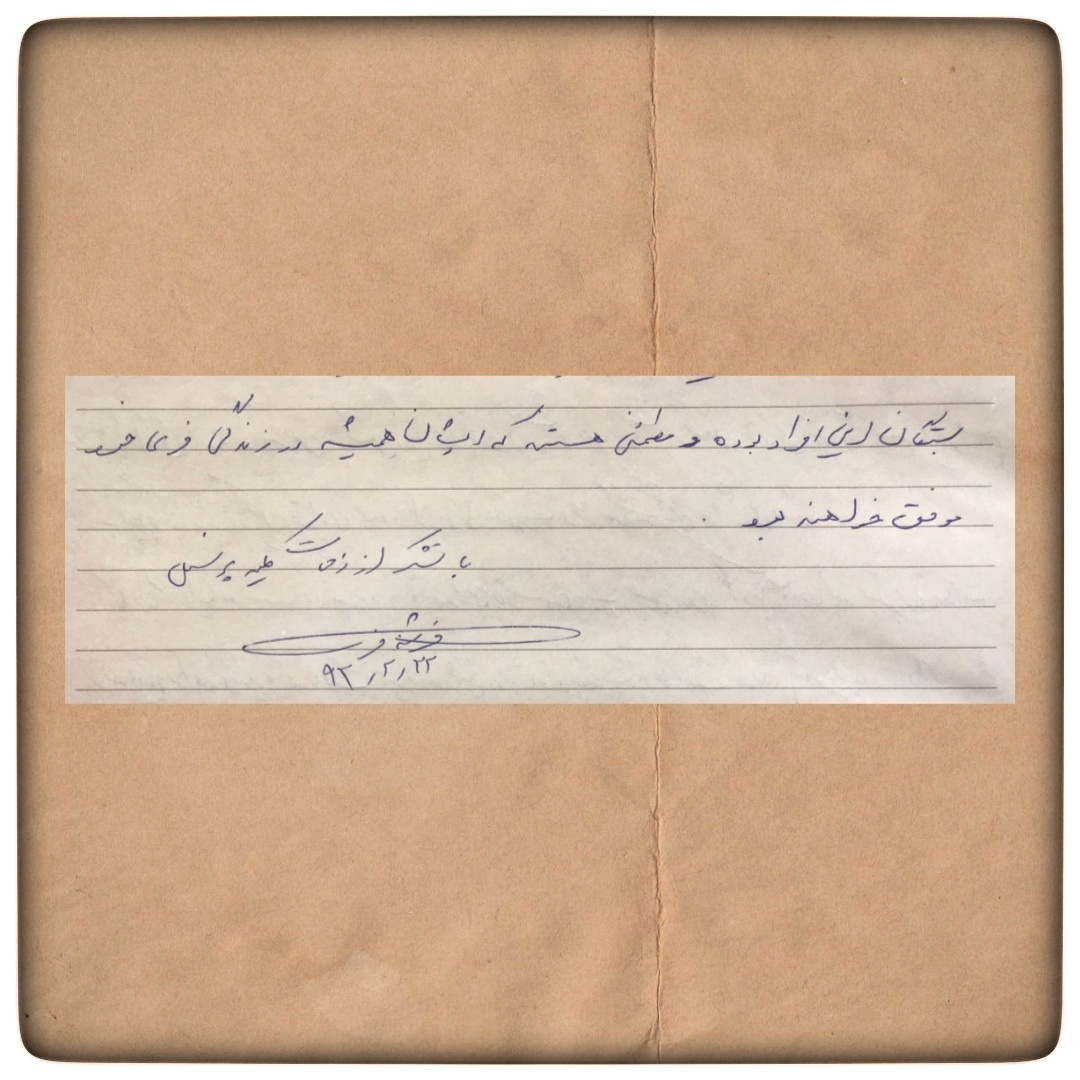 بستگان این افراد بوده و مطمئن هستم که ایشان همیشه در زندگی فردی خود
موفق خواهند بود.
با تشکر از زحمات کلیه پرسنل
۹۳/۲/۲۲